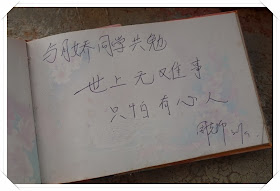 与胜娇同学共勉
世上无难事
只怕有心人